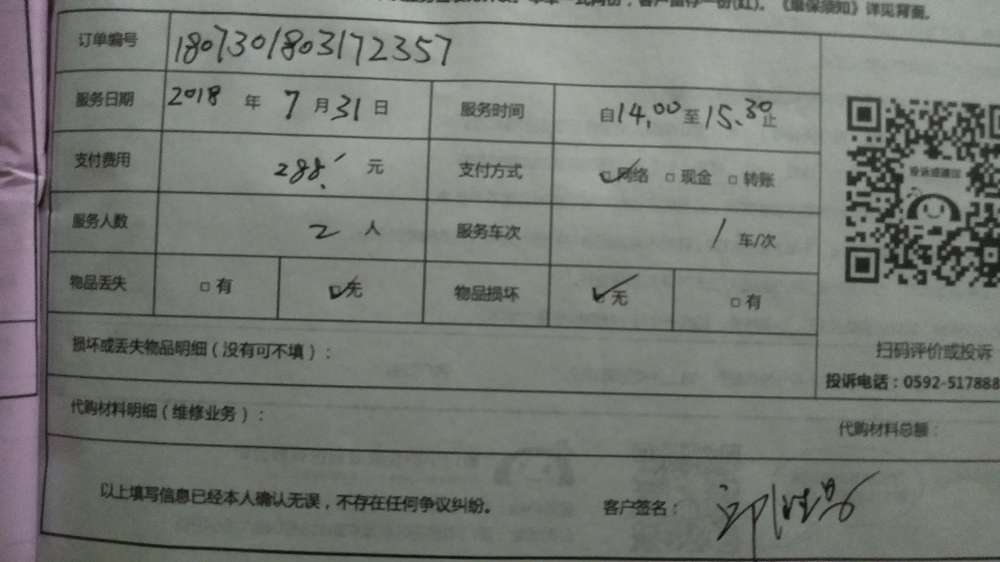 客户留存一份(红)。《维保须知》详见背面。
订单编号 1807301803172357
服务日期 2018 年 7 月 31 日 服务时间 自14.00至15.30止
支付费用 288. 元 支付方式 ☑网络 □现金 □转账
服务人数 2 人 服务车次 1 车/次
物品丢失 □有 ☑无 物品损坏 ☑无 □有
投诉或建议
损坏或丢失物品明细（没有可不填）：
扫码评价或投诉
投诉电话：0592-517888
代购材料明细（维修业务）：
代购材料总额：
以上填写信息已经本人确认无误，不存在任何争议纠纷。 客户签名：